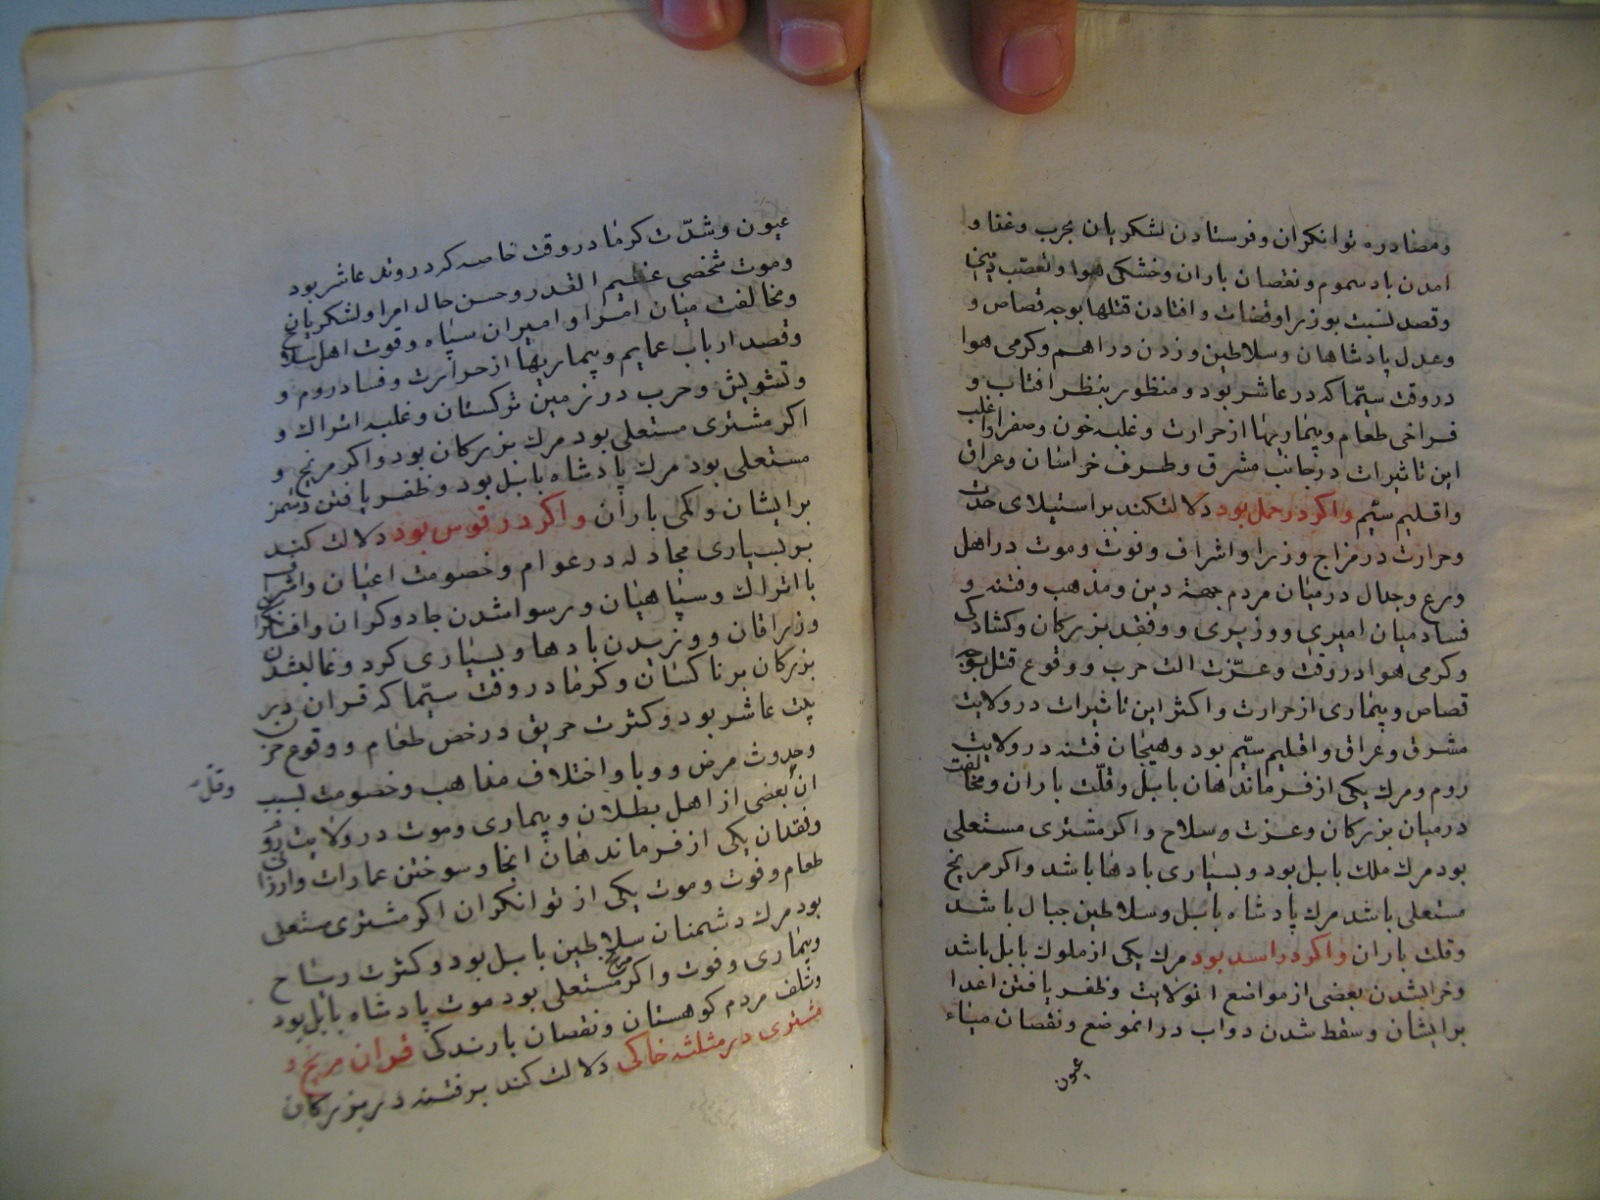 ومصادره توانکران وفرستادن لشکریان بحرب وغذا و
امدن باد سموم ونقصان باران وخشکی هوا وتعصب دینها
وقصد نسبت بوزرا وقضات وافتادن قتلها بوجه قصاص و
وعدل پادشاهان وسلاطین وزدن دراهم وکرمی هوا
در وقت سیّما که در عاشر بود ومنظور بنظر افتاب و
فراخی طعام وبیماریها از حرارت وغلبه خون وصفرا واغلب
این تاثیرات در جانب مشرق وطرف خراسان وعراق
واقلیم سیّم واکر در حمل بود دلالت کند بر استیلای حدت
وحرارت در مزاج وزرا واشراف وفوت وموت در اهل
ورع وجدال در میان مردم جهة دین ومذهب وفتنه و
فساد میان امیری ووزیری ووفقد بزرکان وکشادکی
وکرمی هوا در وقت وعزّت الت حرب ووقوع قتل بوجه
قصاص وبیماری از حرارت واکثر این تاثیرات در ولایت
مشرق وعراق واقلیم سیّم بود وهیجان فتنه در ولایت
روم ومرك یکی از فرماندهان بابل وقلّت باران ومخالفت
در میان بزرکان وعزت وسلاح واکر مشتری مستعلی
بود مرك ملك بابل بود وبسیاری بادها باشد واکر مریخ
مستعلی باشد مرك پادشاه بابل وسلاطین جبال باشد
وقلت باران واکر در اسد بود مرك یکی از ملوك بابل باشد
وخرابشدن بعضی از مواضع انولایت وظفر یافتن اعدا
بر ایشان وسقط شدن دواب در انموضع ونقصان میاه
عیون
عیون وشدّت کرما در وقت خاصه که در وتد عاشر بود
وموت شخصی عظیم القدر وحسن حال امرا ولشکریان
ومخالفت میان امرا وامیران سپاه وقوت اهل سلاح
وقصد ارباب عمایم وبیماریها از حرارت وفساد روم و
وتشویش وحرب در زمین ترکستان وغلبه اتراك و
اکر مشتری مستعلی بود مرك بزرکان بود واکر مریخ و
مستعلی بود مرك پادشاه بابل بود وظفر یافتن دشمن
بر ایشان وکمی باران واکر در قوس بود دلالت کند
بر بسیاری مجادله در عوام وخصومت اعیان واشراف
با اتراك وسپاهیان ورسوا شدن جادوکران وافسونکران
وزراقان ووزیدن بادها وبسیاری کرد وغالبشدن
بزرکان بر ناکسان وکرما در وقت سیّما که قران در
بیت عاشر بود وکثرت حریق در رخص طعام ووقوع حرب
وحدوث مرض ووبا واختلاف مذاهب وخصومت بسبب
وقلّه
ان بعضی از اهل بطلان وبیماری وموت در ولایت روم
ونقدان یکی از فرماندهان انجا وسوختن عمارات وارزانی
طعام وفوت وموت یکی از توانکران اکر مشتری مستعلی
بود مرك دشمنان سلاطین بابل بود وکثرت
وبیماری وفوت واکر مریخ مستعلی بود موت پادشاه بابل بود
وتلف مردم کوهستان ونقصان بارندکی قران مریخ و
مشتری در مثلثه خاکی دلالت کند بر فتنه در بزرکان